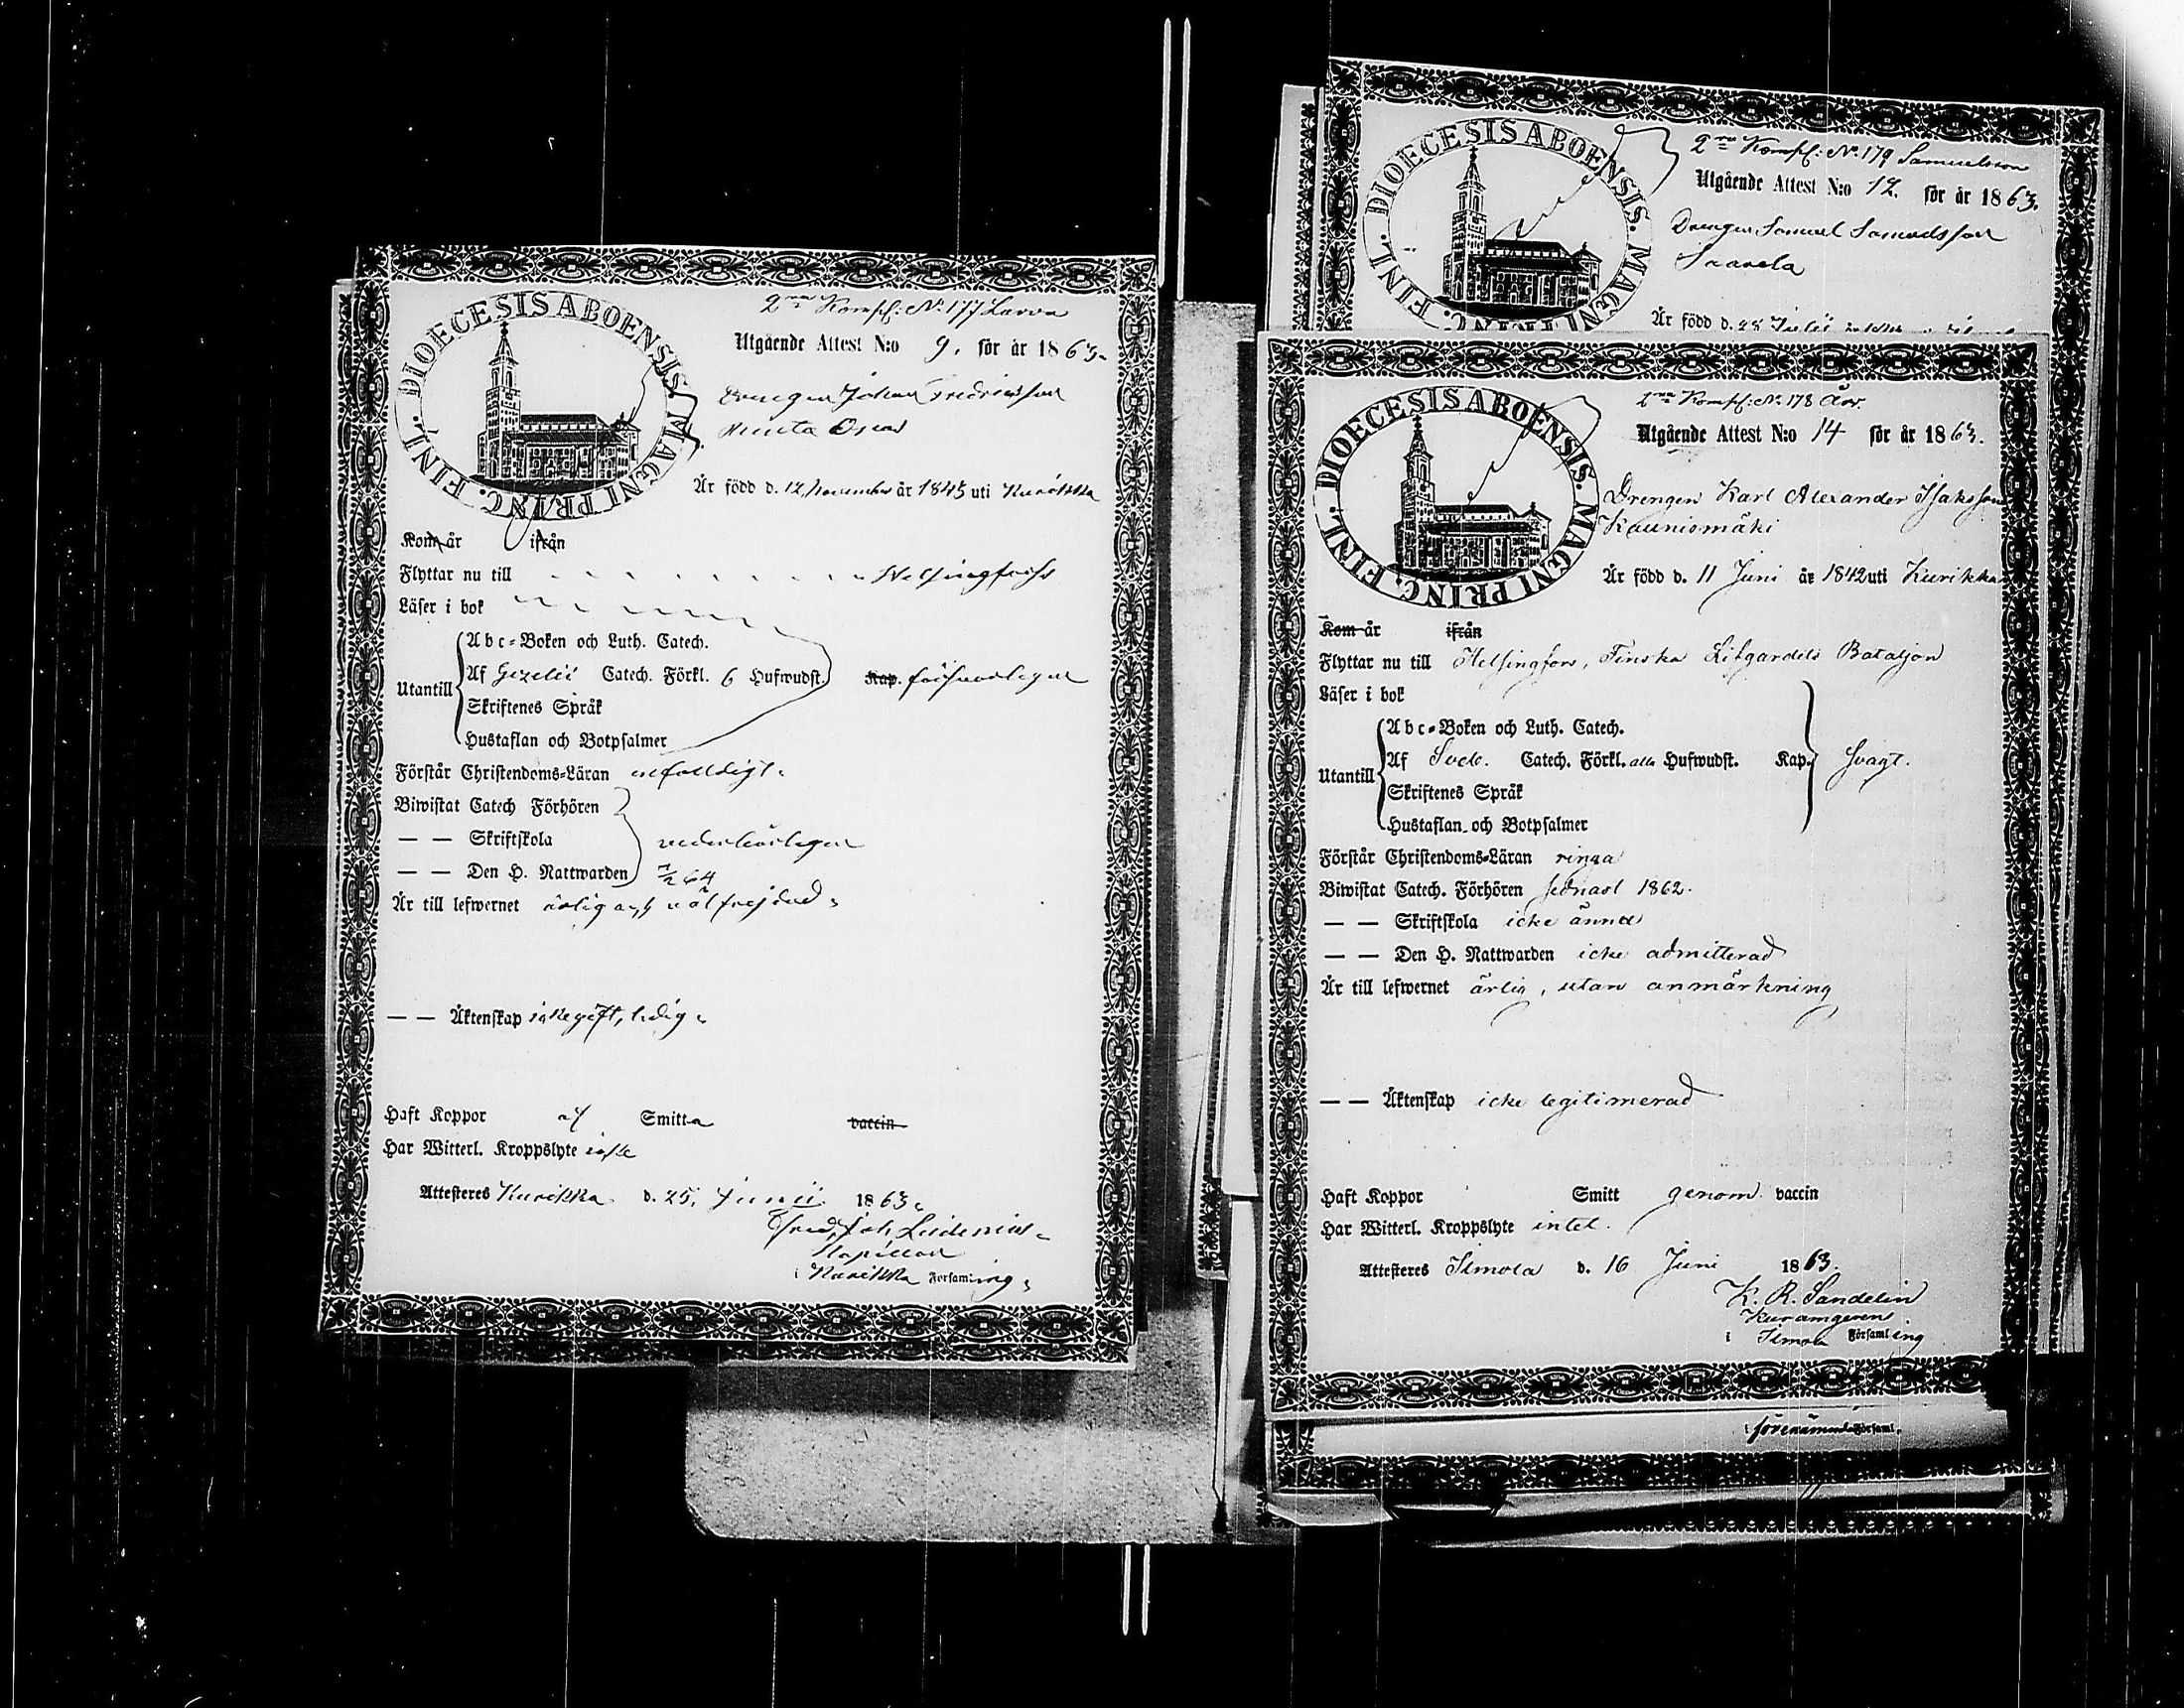 DIOECESIS ABOENSIS. MAGNI PRINC. FINL.
2ra Komp: No 177 Larva
Utgående Attest N:o 9. för år 1863.
Drengen Johan Fredriksson
Är född d. 12 November år 1845 uti Kurikka
Kom år ifrån
Flyttar nu till Helsingfors
Läser i bok
Utantill
Abc-Boken och Luth. Catech.
Af Gezelii Catech. Förkl. 6 Hufwudst. Kap. försvarligen
Skriftenes Språk
Hustaflan och Botpsalmer
Förstår Christendoms-Läran enfaldigt.
Biwistat Catech Förhören
— — Skriftskola vederbörligen
— — Den H. Nattwarden
Är till lefwernet ärlig och välfrejdad.
— — Äktenskap icke gift, ledig.
Haft Koppor af Smitta vaccin
Har Witterl. Kroppslyte icke
Attesteres Kurikka d. 25. Junii 1863.
Kapellan
i Kurikka Församling.
DIOECESIS ABOENSIS. MAGNI PRINC. FINL.
2ra Komp: No 179 Samuelsson
Utgående Attest N:o 12. för år 1863.
Drengen Samuel Samuelsson
Är född d. 28 Julii
DIOECESIS ABOENSIS. MAGNI PRINC. FINL.
2ra Komp: No 178 Arv.
Utgående Attest N:o 14 för år 1863.
Drengen Karl Alexander Isaksson
Kaunismäki
Är född d. 11 Juni år 1842 uti Kurikka
Kom år ifrån
Flyttar nu till Helsingfors, Finska Lifgardets Bataljon
Läser i bok
Utantill
Abc-Boken och Luth. Catech.
Af Sveb. Catech. Förkl. alla Hufwudst. Kap. svagt.
Skriftenes Språk
Hustaflan och Botpsalmer
Förstår Christendoms-Läran ringa
Biwistat Catech. Förhören sednast 1862.
— — Skriftskola icke ännu
— — Den H. Nattwarden icke admitterad
Är till lefwernet ärlig, utan anmärkning
— — Äktenskap icke legitimerad
Haft Koppor Smitt genom vaccin
Har Witterl. Kroppslyte intet.
Attesteres Ilmola d. 16 Juni 1863.
K. R. Sandelin
i Ilmola Församling
i förenämnde Församl.